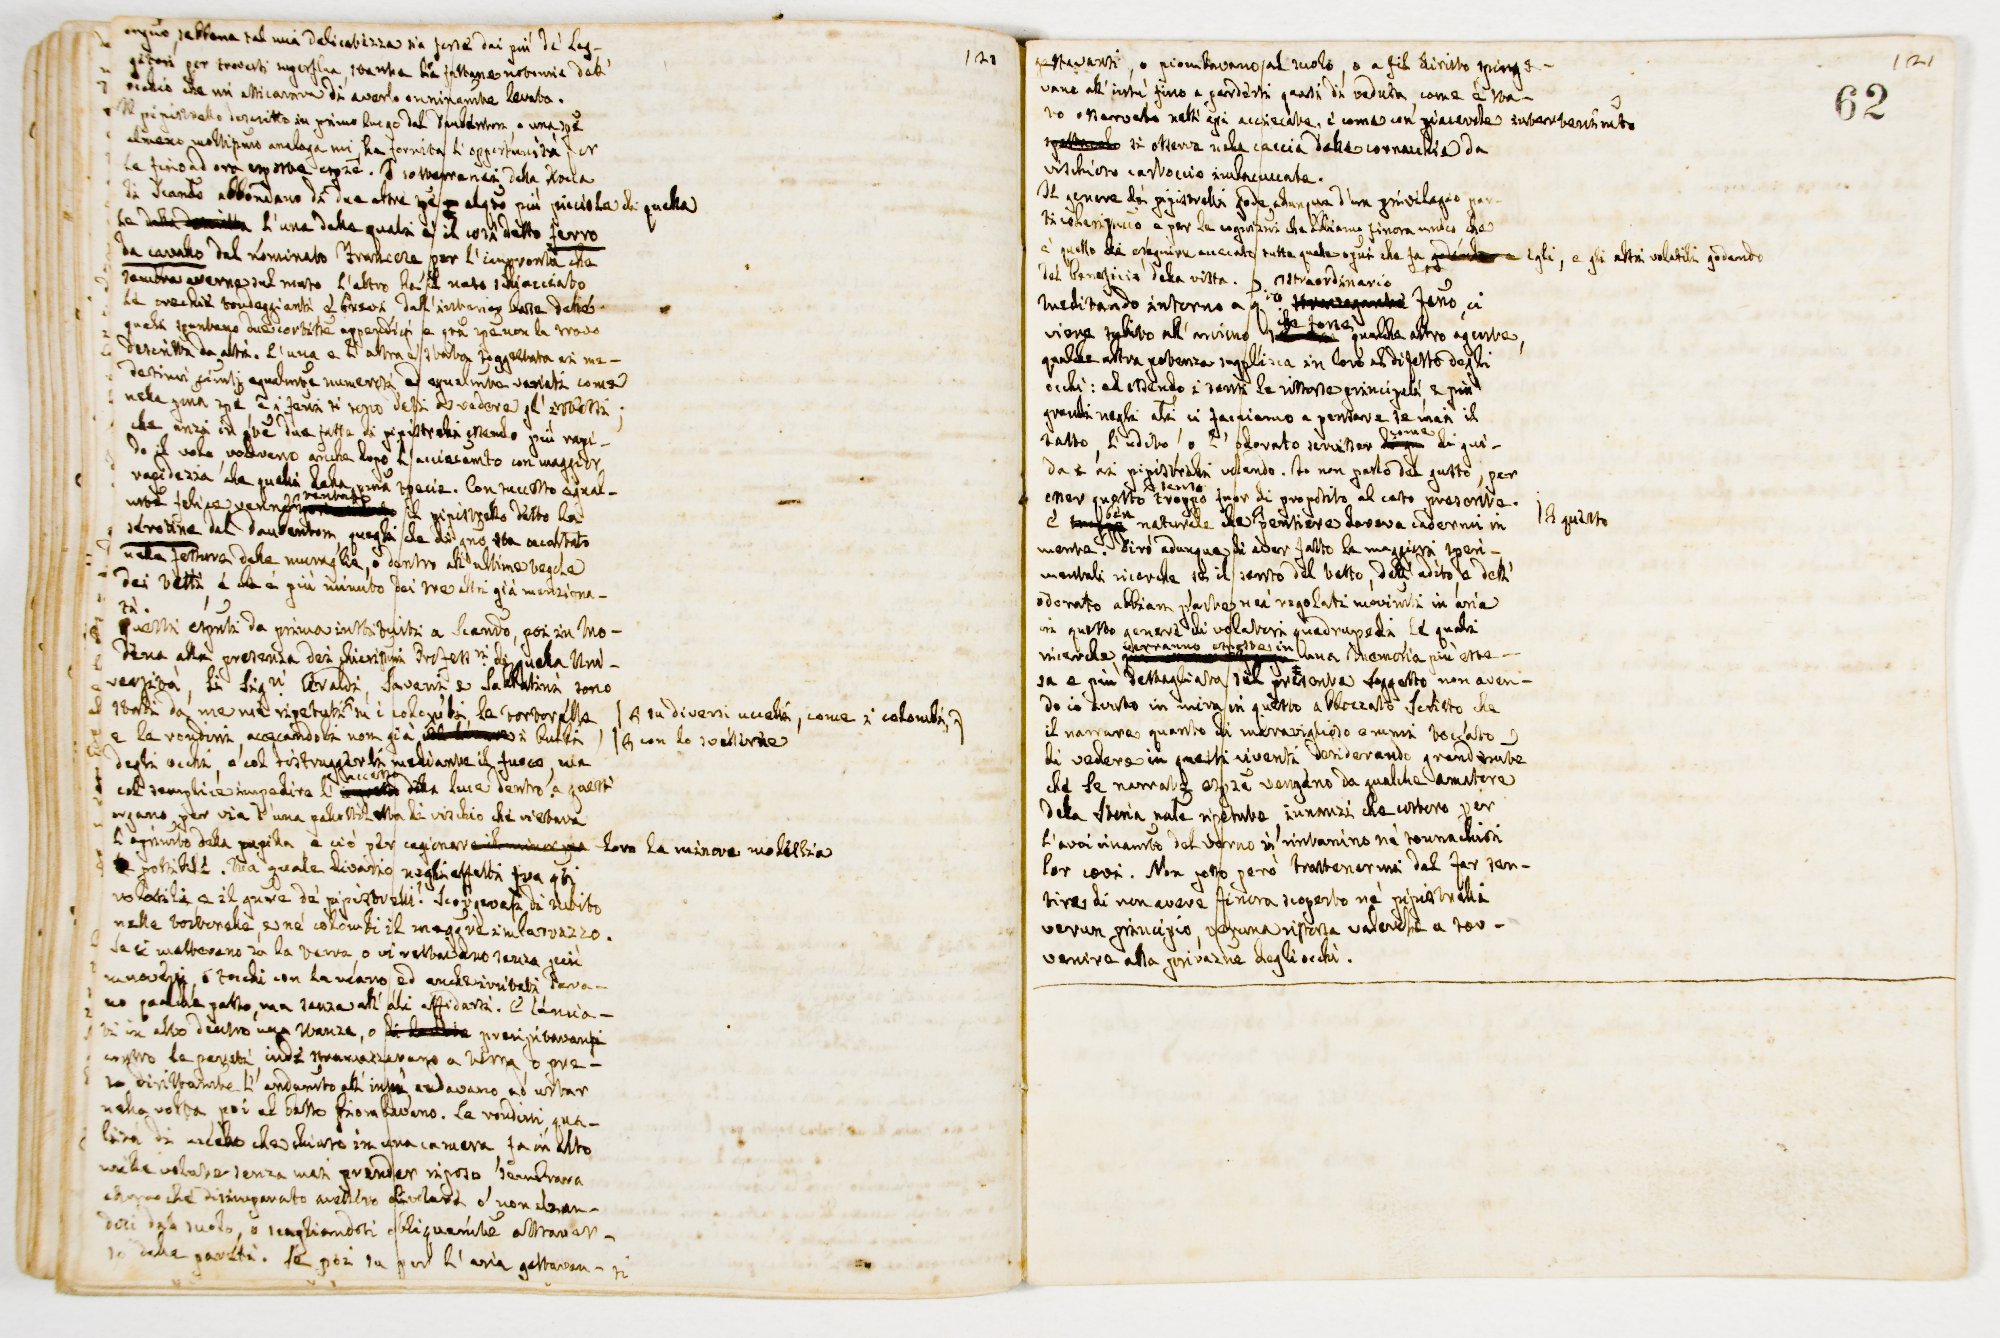 organo, sebbene tal mia delicatezza sia forse dai più de' Leg-
gitori per trovarsi superflua, stante la
occhio che mi assicurava di averlo onninamente levato.
Il pipistrello descritto in primo luogo dal Daubenton, o una spe
almeno moltissimo analoga mi ha fornita l'opportunità per
le fino ad ora esposte esp.ze. I sotterranei della Rocca
di Scando abbondano di due altre spe alq.to più picciole di quella
le l'una delle quali è il così detto ferro
da cavallo dal nominato Francese per l'impronta che
sembra averne sul muso. L'altro ha il naso schiacciato
le orecchie tondeggianti e brevi dall'interior base delle
quali spuntano due cortissime appendici e
descritta da altri. L'una e l'altra è stata soggettata ai me-
desimi cimenti egualm.te numerosi ed egualm.te variati come
nella p.ma spe e i fen.i si sono dessi a vedere gl'istessi;
che anzi in q.te due fatte di pipistrelli essendo più rapi-
do il volo, volavano anche dopo l'acciecam.to con maggior
rapidezza che quelli della prima specie. Con successo egual-
m.te felice venne tentato il pipistrello detto la
serotine dal Daubenton, quegli che di g.no sta accovato
nelle fessure delle muraglie, o dentro all'ultime tegole
dei tetti, e che è più minuto dei tre altri già menziona-
ti.
Questi esp.ti da prima instituiti a Scando, poi in Mo-
dena alla presenza dei chiarissimi Profess.ri di quella Uni-
versità, li Sig.ri Araldi, Savani e Sabbatini sono
stati da me ripetuti su i colombi, le tortorelle
e le rondini, accecandoli non già
|A su diversi uccelli, come i colombi,
|A con lo svellerne
degli occhi, o col distruggerli mediante il fuoco, ma
col semplice impedire l'accesso della luce dentro a quest'
organo per via d'una pallottoletta di vischio che vietava
l'aprim.to della pupilla, e ciò per cagionare loro la minore molestia
possibile. Ma quale divario negli effetti fra q.ti
volatili e il gen.e de' pipistrelli! Scorgevasi di subito
nelle tortorelle, e ne' colombi il maggiore imbarazzo.
Se si mettevano su la terra, o vi restavano senza più
muoversi, o tocchi con la mano, ed anche irritati face-
no qualche passo, ma senza all'ali affidarsi. E lancia-
ti in alto dentro una stanza, o precipitavansi
contro le pareti, indi stramazzavano a terra, o pre-
so dirittamente l'andam.to all'insù andavano ad urtar
nella volta poi al basso piombavano. Le rondini, qua-
lità di uccello che chiuso in una camera, fa in alto
mille volate senza mai prender riposo sembrava
che disimparato avessero di volare, o non alzan-
dosi dal suolo, o scagliandosi obliquam.te attraver-
so delle pareti. Se poi su per l'aria gettavan-si
121
gettavansi, o piombavano al suolo, o a fil diritto spinge-
vano all'insù fino a perdersi quasi di veduta, come è sta-
to osservato nelli api acciecate, e come con piacevole intertenim.to
si osserva nella caccia della cornacchia da
vischioso cartoccio imbacuccata.
Il genere dei pipistrelli gode adunque d'un privilegio par-
ticolarissimo e per le cognizioni che abbiamo finora unico che
è quello di eseguire acciecato tutte quelle opz.ni che fa egli, e gli altri volatili godendo
del beneficio della vista.
Meditando intorno a q.to straordinario fen.o, ci
viene subito all'animo se forse qualche altro agente,
qualche altra potenza supplisca in loro al difetto degli
occhi: ed essendo i sensi le risorse principali, e più
grandi negli ali ci facciamo a pensare se mai il
tatto, l'udito o l'odorato servisser come di gui-
da ai pipistrelli volando. Io non parlo del gusto, per
esser questo senso troppo fuor di proposito al caso presente.
È ben naturale che pensiere doveva cadermi in |A questo
mente. Dirò adunque di aver fatto le maggiori speri-
mentali ricerche se il senso del tatto, dell'udito, e dell'
odorato abbiam parte nei regolati movim.ti in aria
in questo genere di volatori quadrupedi, le quali
ricerche verranno esposte in una Memoria più este-
sa e più dettagliata sul presente soggetto non aven-
do io avuto in mira in questo abbozzato Scritto che
il narrare quanto di maraviglioso emmi toccato
di vedere in questi viventi desiderando grandem.te
che le narrate esp.ze vengano da qualche amatore
della Storia nat.le ripetute, innanzi che costoro per
l'avvicinam.to del verno si rintanino ne' sonnacchiosi
lor covi. Non posso però trattenermi dal far sen-
tire di non avere finora scoperto ne' pipistrelli
verun principio, veruna risorsa valevole a sov-
venire alla privaz.ne degli occhi.
121
62